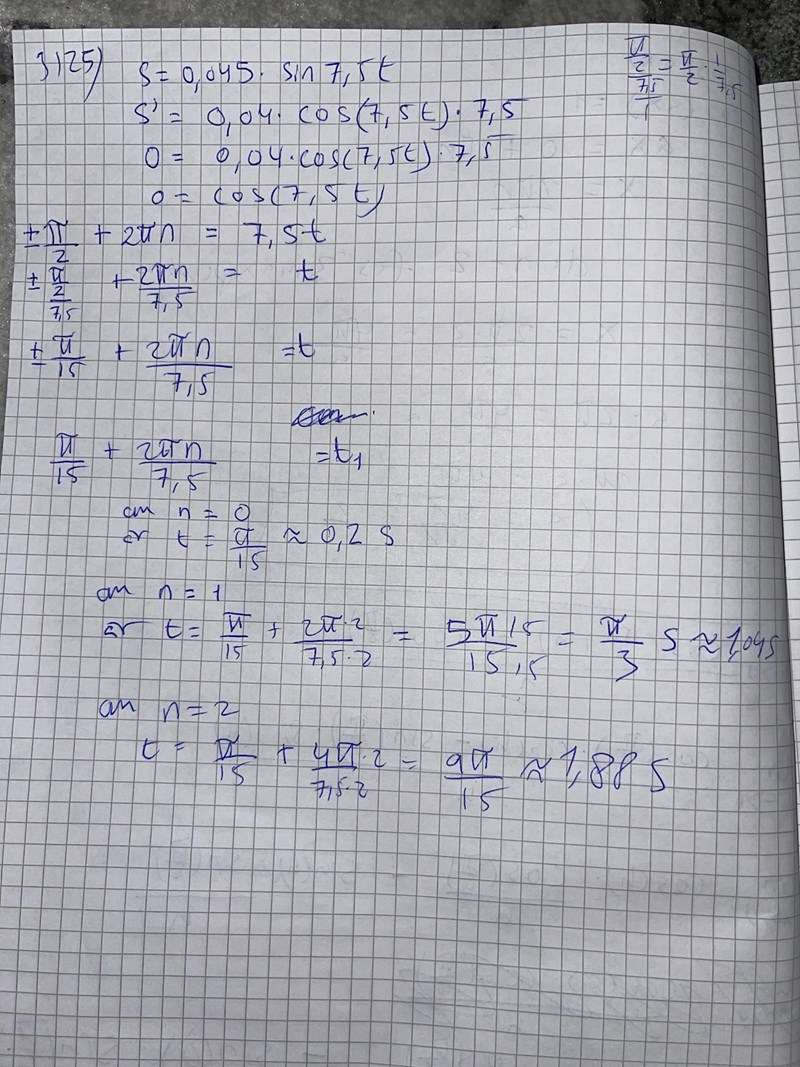 3125) S = 0,045 · sin 7,5t
π/2/7,5/1 = π/2 · 1/7,5
S' = 0,04 · cos(7,5t) · 7,5
0 = 0,04 · cos(7,5t) · 7,5
0 = cos(7,5t)
± π/2 + 2πn = 7,5t
± π/2/7,5 + 2πn/7,5 = t
± π/15 + 2πn/7,5 = t
π/15 + 2πn/7,5 = t₁
om n = 0
är t = π/15 ≈ 0,2 s
om n = 1
är t = π/15 + 2π·2/7,5·2 = 5π/5/15/5 = π/3 s ≈ 1,04s
om n = 2
t = π/15 + 4π·2/7,5·2 = 9π/15 ≈ 1,88 s